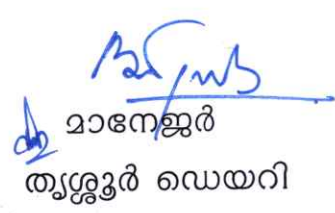 മാനേജർ
തൃശ്ശൂർ ഡെയറി